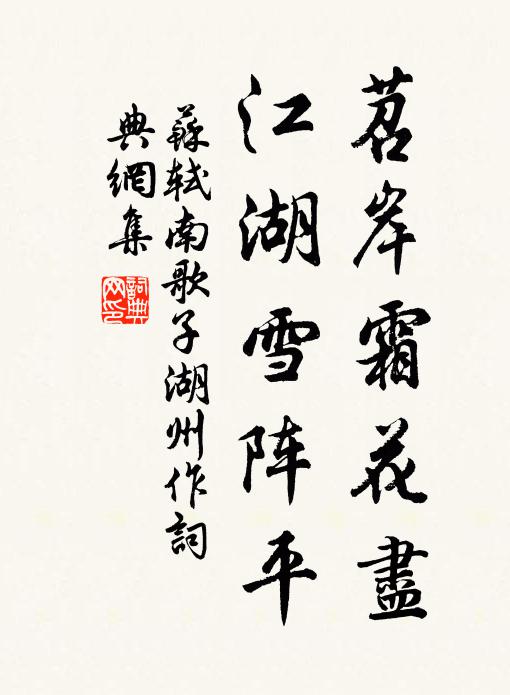 苕岸霜花盡
江湖雪阵平
蘇軾南歌子湖州作詞
典網集
詞典
网印